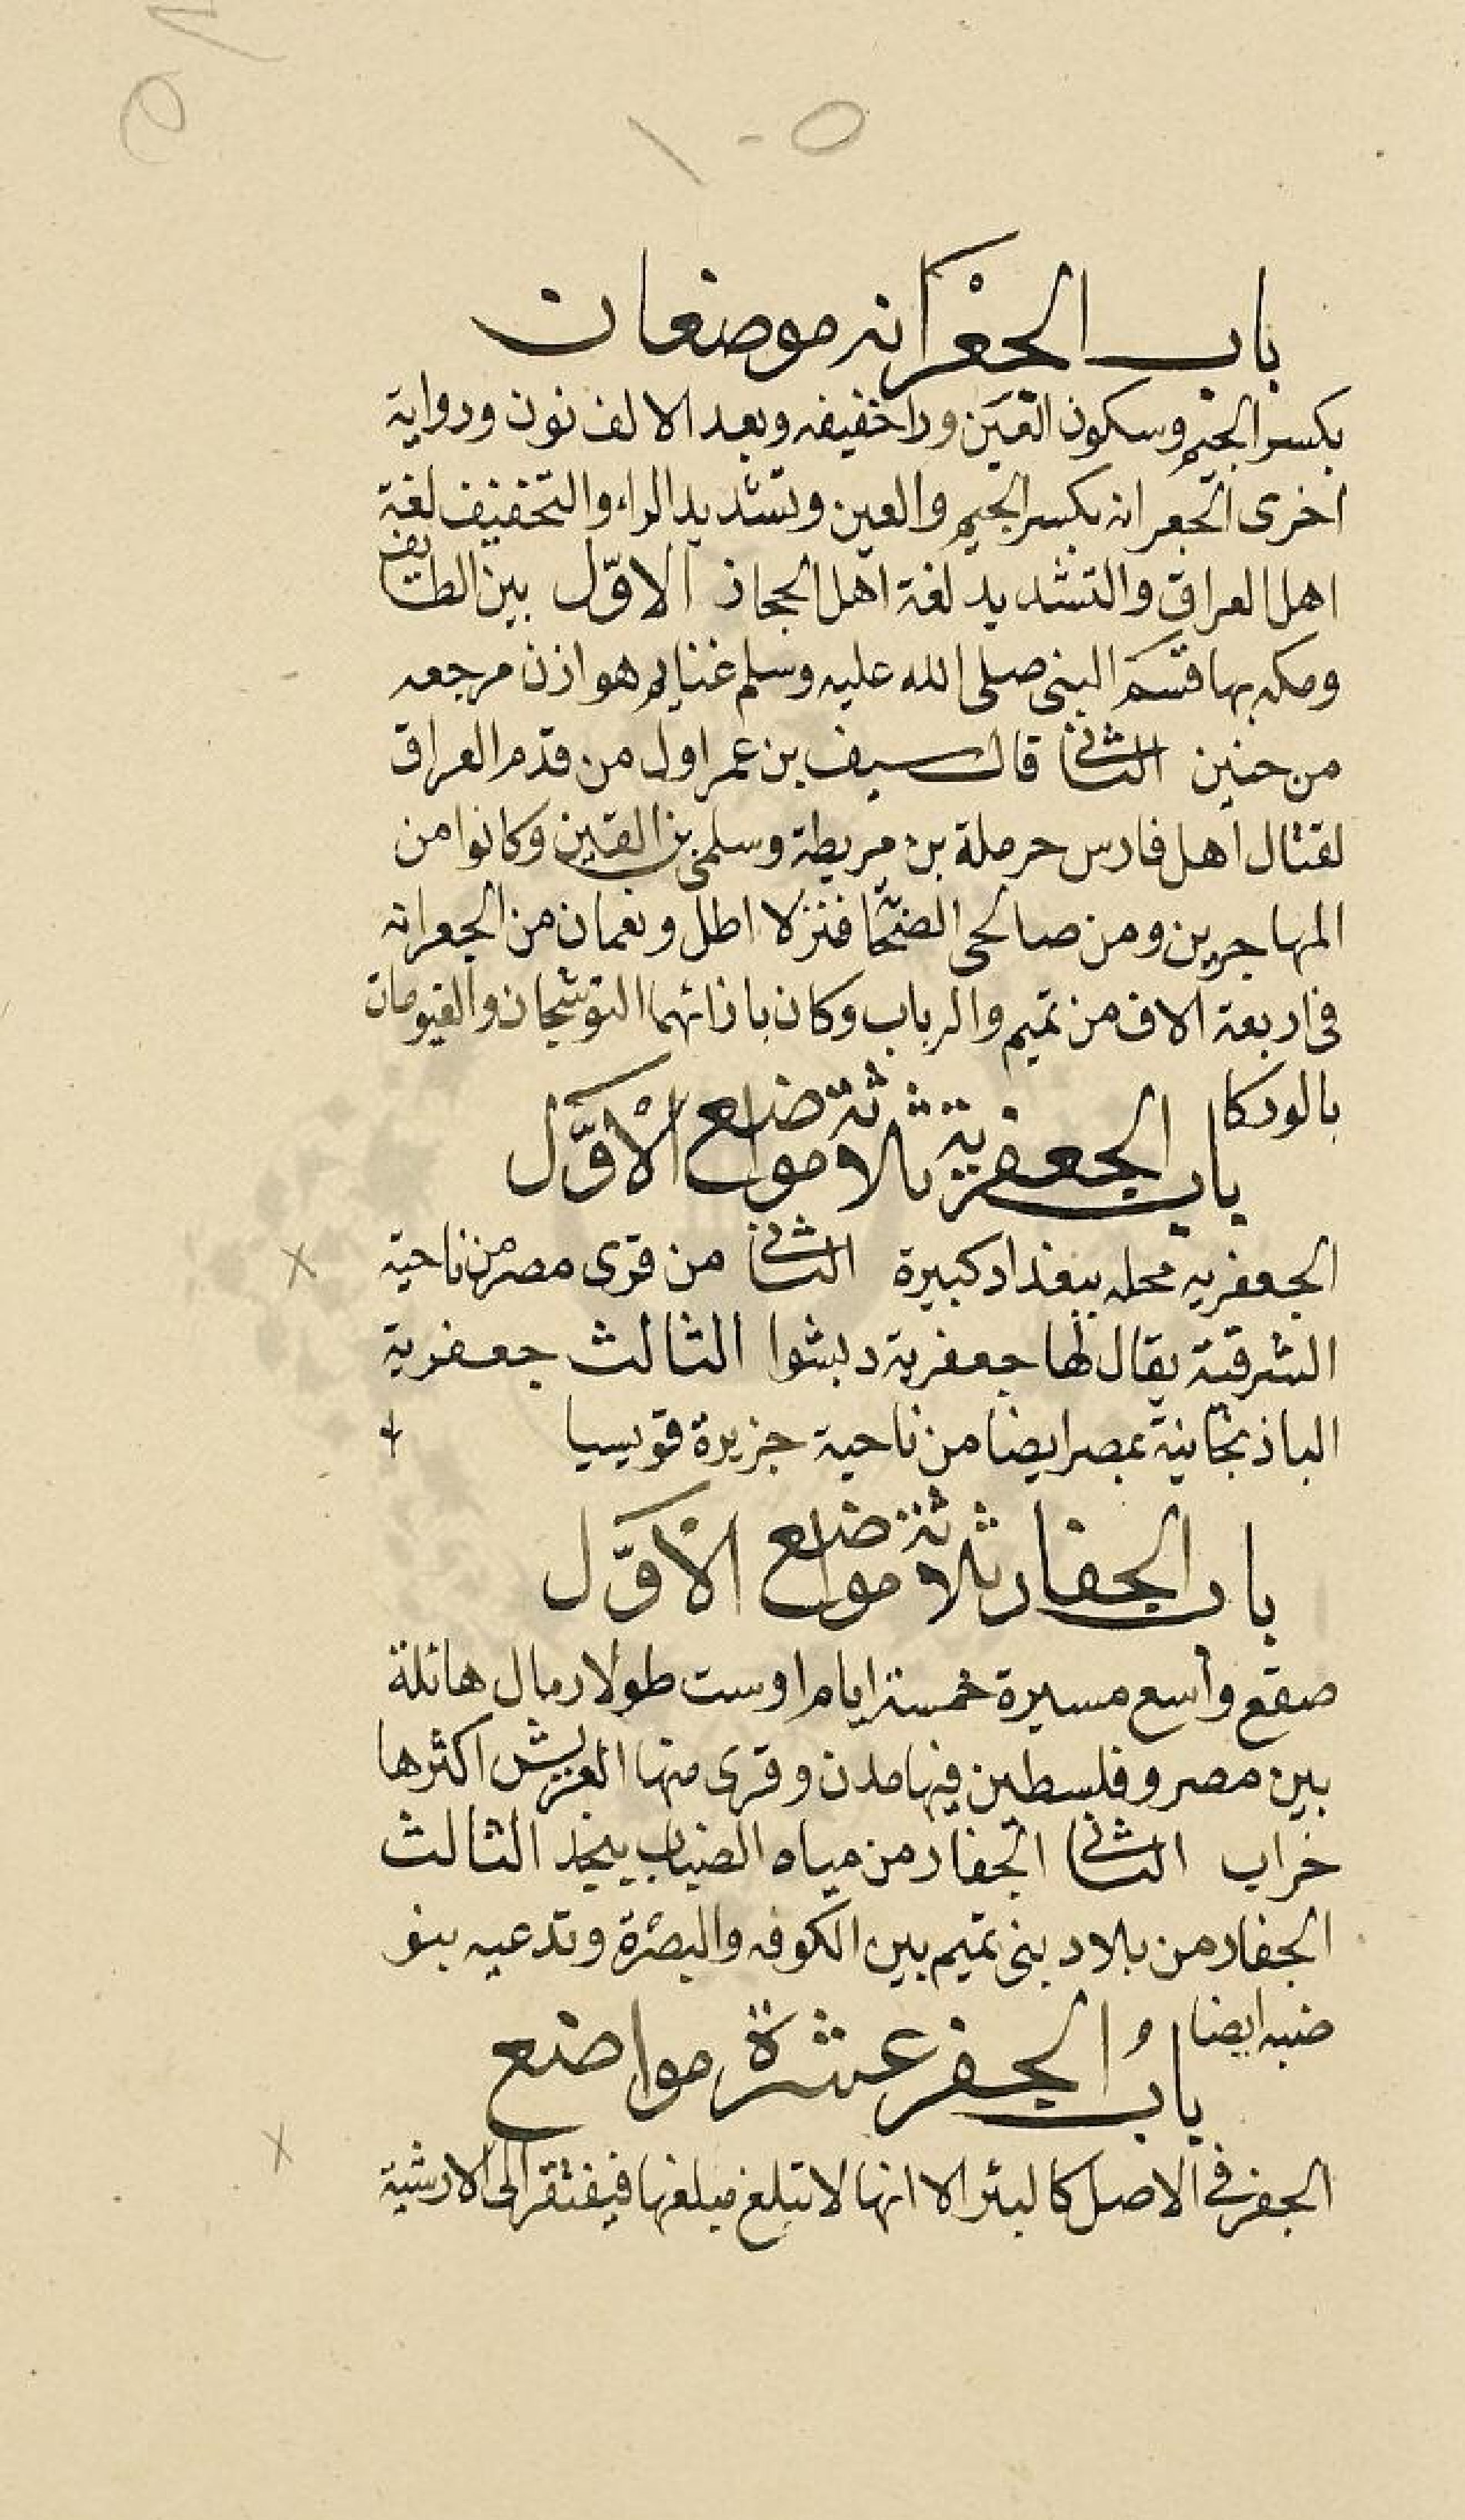 ١٠٥
باب الجعْرانه موضعان
بكسر الجيم وسكون العَين ورا خفيفه وبعد الالف نون ورواية
اخرى الجعرانه بكسر الجيم والعين وتشديد الراء والتخفيف لغة
اهل العراق والتشديد لغة اهل الحجاز الاوّل بين الطايف
ومكه بها قسم النبى صلى الله عليه وسلم غنايم هوازن مرجعه
من حنين الثانى قال سيف بن عمر اول من قدم العراق
لقتال اهل فارس حرملة بن مريطة وسلمى بن القين وكانوا من
المهاجرين ومن صالحى الصحا فنزلا اطل ونعمان من الجعرانه
فى اربعة الاف من تميم والرباب وكان بازائهما النوشجان والفيومان
بالوركا
باب الجعفرية ثلاثة مواضع الْاوَّل
الجعفريه محله ببغداد كبيرة الثانى من قرى مصر من ناحية
الشرقية يقال لها جعفرية دبشوا الثالث جعفرية
الباذنجانية بمصر ايضا من ناحية جزيرة قويسيا
باب الجفار ثلاثة مواضع الْاوّل
صقع واسع مسيرة خمسة ايام اوست طولا رمال هائلة
بين مصر وفلسطين فيها مدن وقرى منها العريش اكثرها
خراب الثانى الجفار من مياه الضباب بنجد الثالث
الجفار من بلاد بنى تميم بين الكوفه والبصرة وتدعيه بنو
ضبه ايضا
بابُ الجفر عشرة مواضع
الجفر فى الاصل كالبئر الا انها لا تبلغ مبلغها فيفتقر الى الارشية